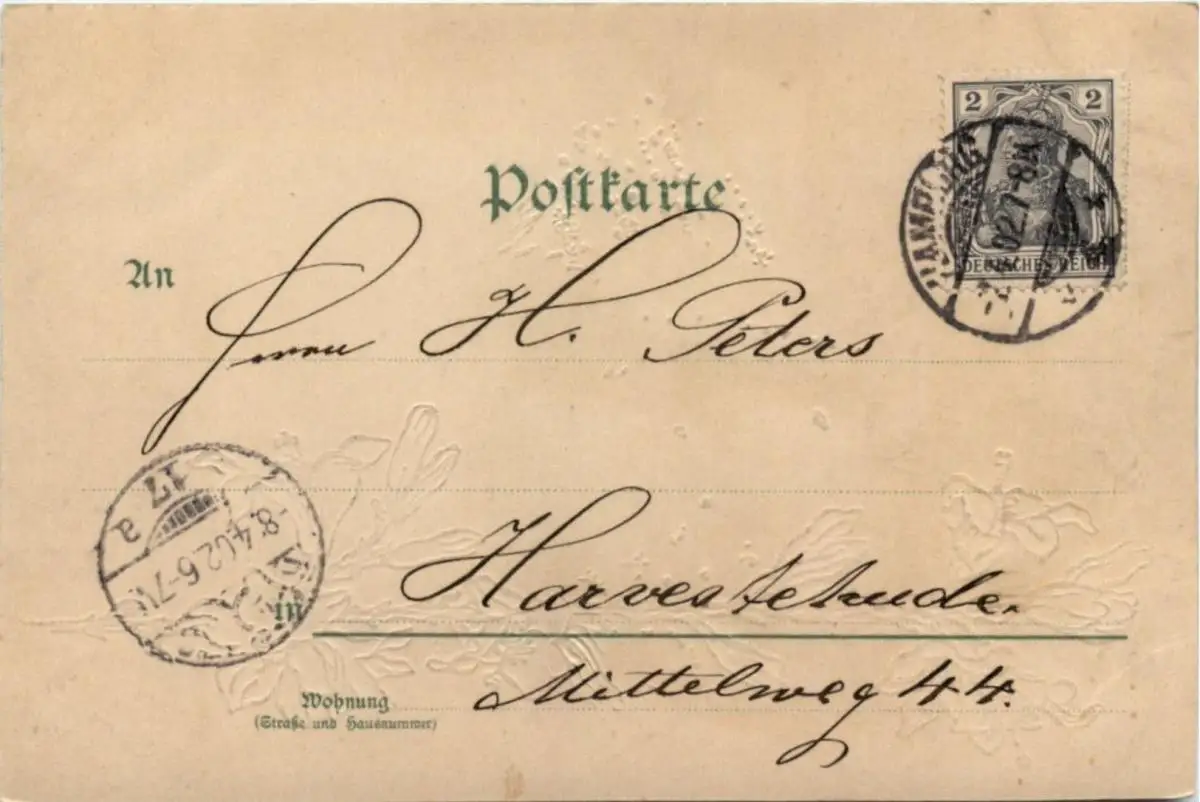 Postkarte
2 2
DEUTSCHES REICH
HAMBURG
02.7-8N
An
Herrn H. Peters
17
a
-8.4.02.6-7V
Harvestehude.
in
Mittelweg 44.
Wohnung
(Straße und Hausnummer)